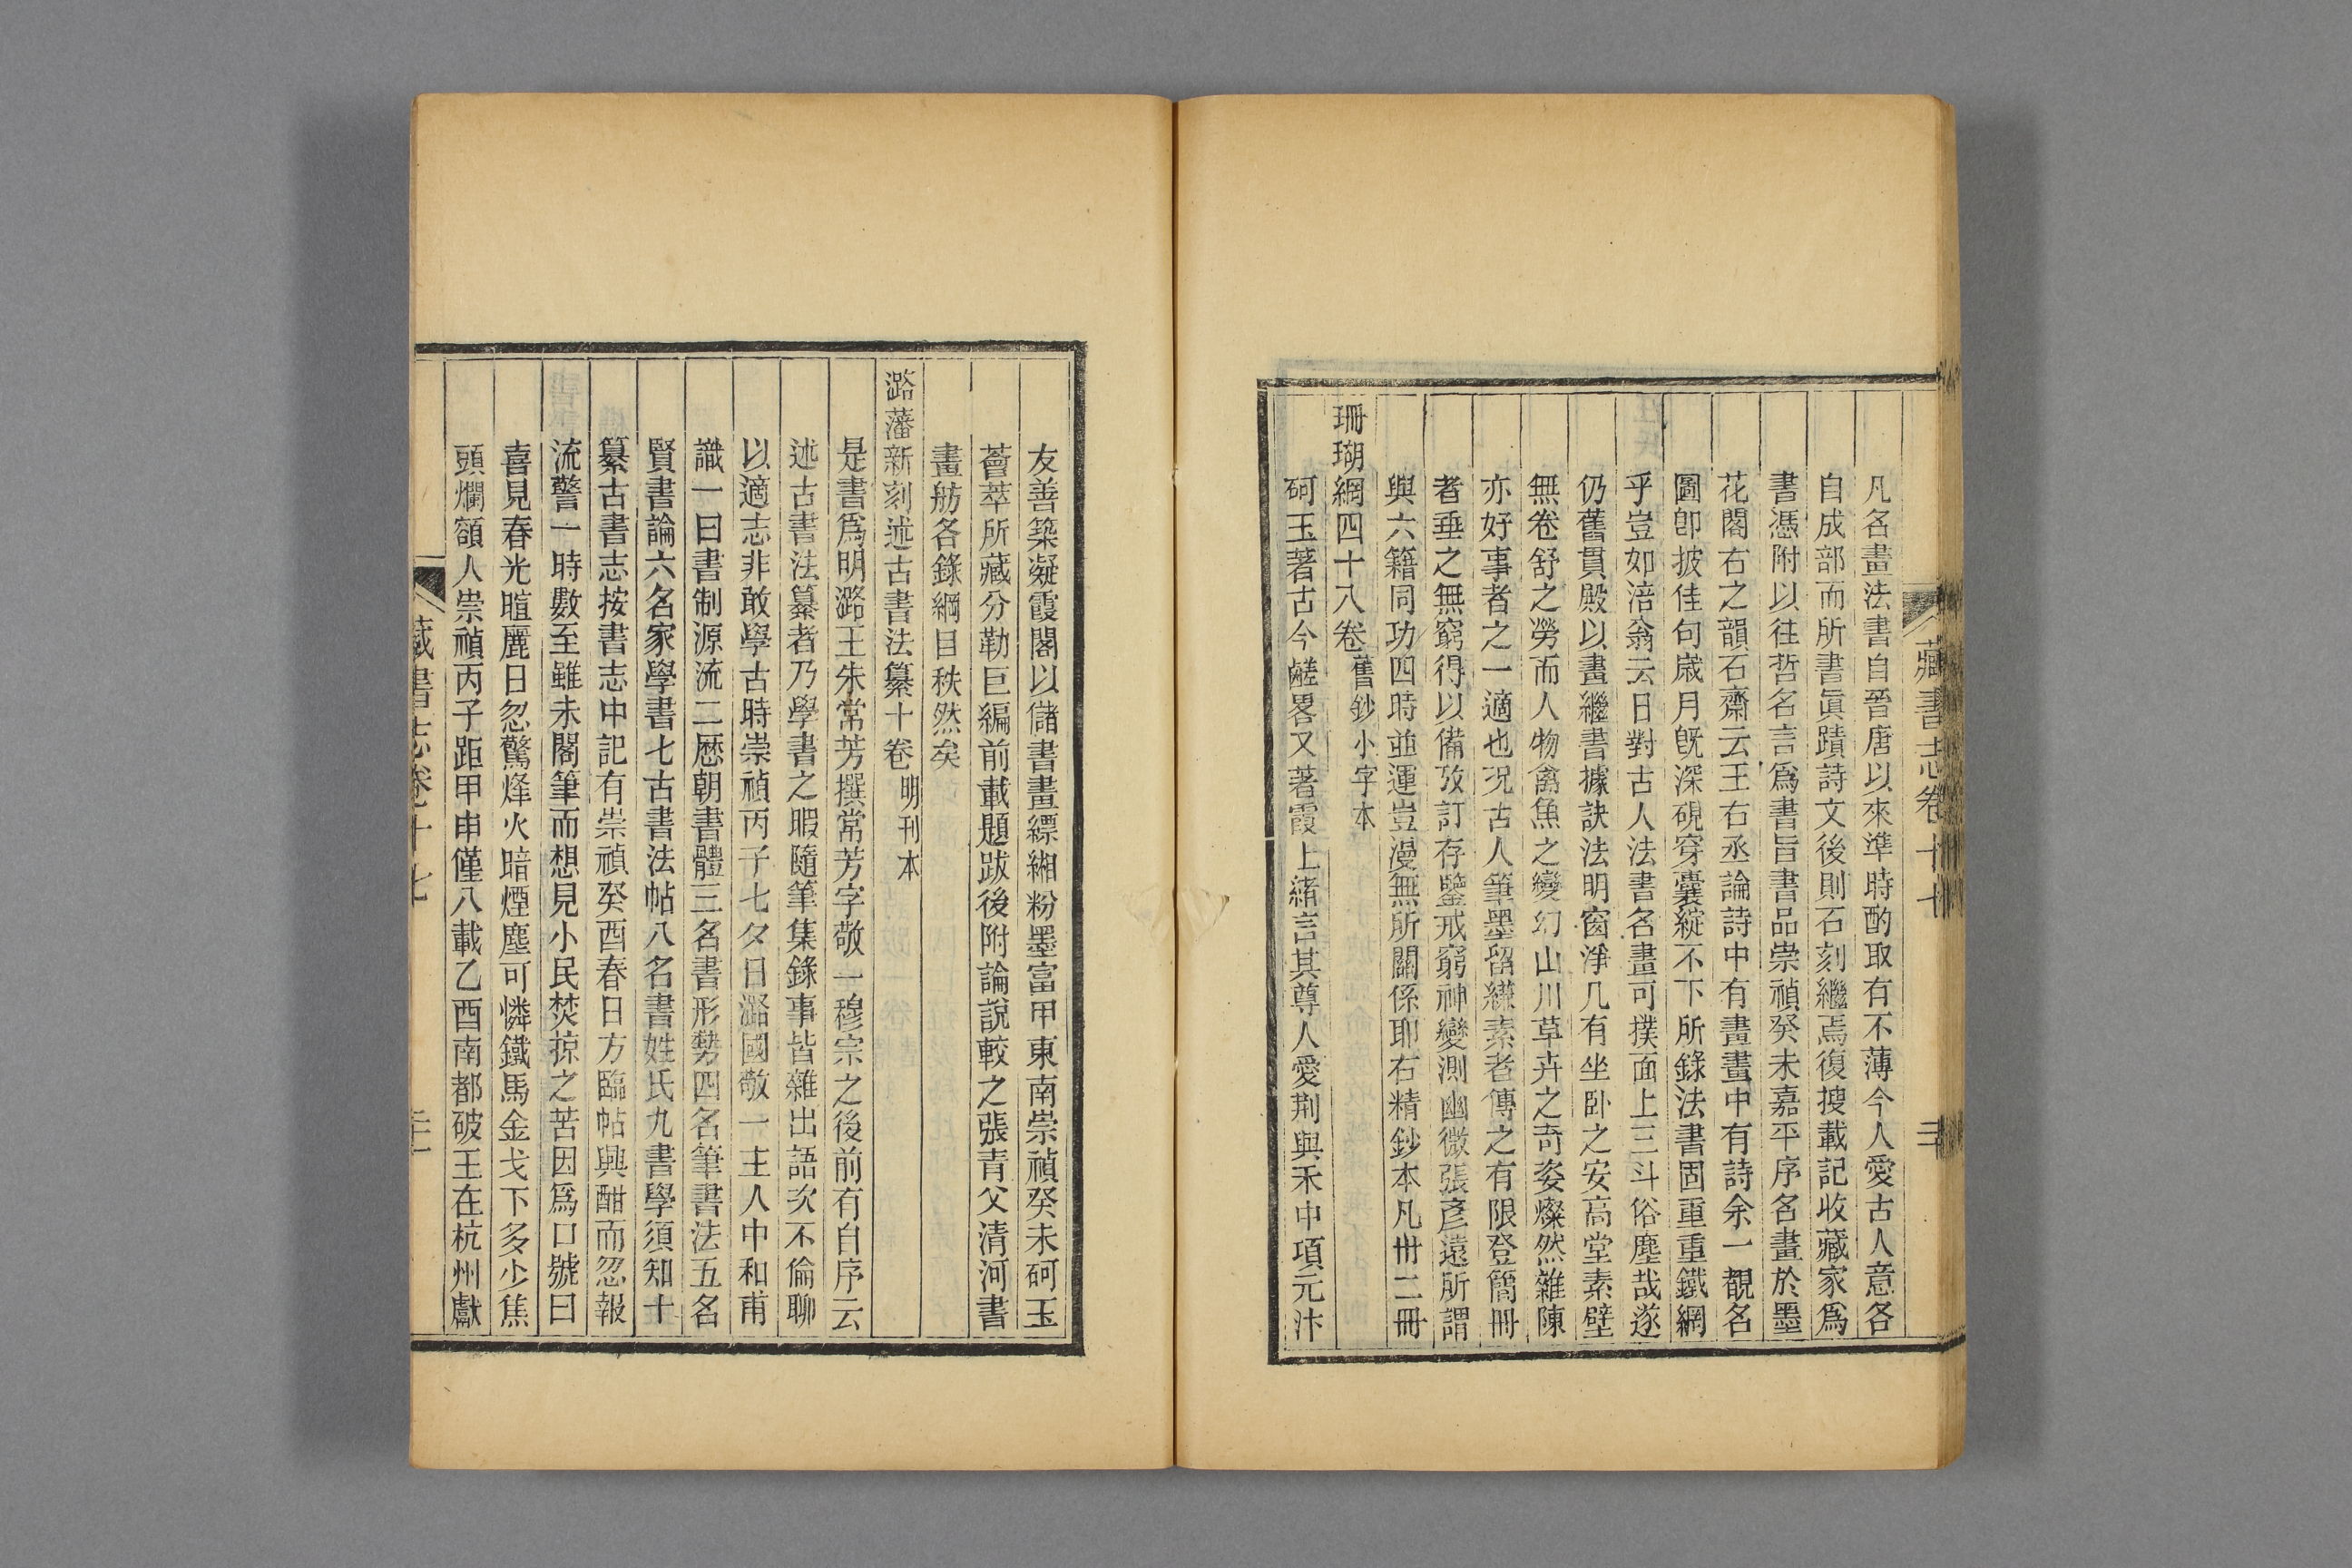 藏書志卷十七
二十
凡名畫法書自晉唐以來準時酌取有不薄今人愛古人意各
自成部而所書眞蹟詩文後則石刻繼焉復搜載記收藏家爲
書憑附以往哲名言爲書旨書品崇禎癸未嘉平序名畫於墨
花閣右之韻石齋云王右丞論詩中有畫畫中有詩余一覩名
圖卽披佳句歲月旣深硯穿囊綻不下所錄法書固重重鐵網
乎豈如涪翁云日對古人法書名畫可撲面上三斗俗塵哉遂
仍舊貫殿以畫繼書據訣法明窗淨几有坐卧之安高堂素壁
無卷舒之勞而人物禽魚之變幻山川草卉之奇姿燦然雜陳
亦好事者之一適也况古人筆墨留縑素者傳之有限登簡冊
者垂之無窮得以備攷訂存鑒戒窮神變測幽微張彥遠所謂
與六籍同功四時並運豈漫無所關係耶右精鈔本凡卌二冊
珊瑚網四十八卷舊鈔小字本
砢玉著古今鹺畧又著霞上緒言其尊人愛荆與禾中項元汴
友善築凝霞閣以儲書畫縹緗粉墨富甲東南崇禎癸未砢玉
薈萃所藏分勒巨編前載題跋後附論說較之張青父清河書
畫舫各錄綱目秩然矣
潞藩新刻述古書法纂十卷明刊本
是書爲明潞王朱常芳撰常芳字敬一穆宗之後前有自序云
述古書法纂者乃學書之暇隨筆集錄事皆雜出語次不倫聊
以適志非敢學古時崇禎丙子七夕日潞國敬一主人中和甫
識一曰書制源流二歷朝書體三名書形勢四名筆書法五名
賢書論六名家學書七古書法帖八名書姓氏九書學須知十
纂古書志按書志中記有崇禎癸酉春日方臨帖興酣而忽報
流警一時數至雖未閣筆而想見小民焚掠之苦因爲口號曰
喜見春光暄麗日忽驚烽火暗煙塵可憐鐵馬金戈下多少焦
頭爛額人崇禎丙子距甲申僅八載乙酉南都破王在杭州獻
藏書志卷十七
二十一